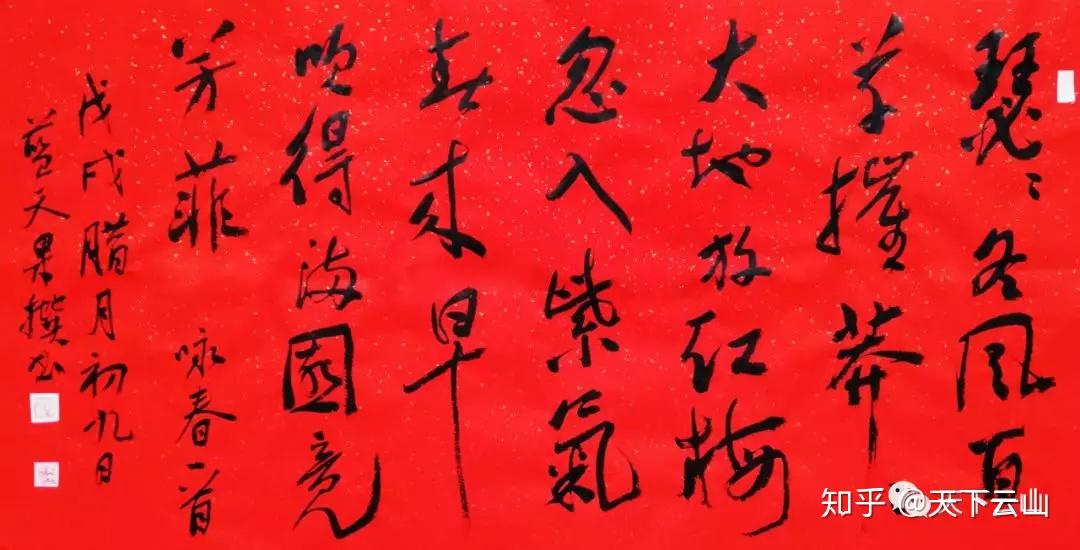 瑟〻冬風百
草摧莽
大地放红梅
忽入紫氣
春来早
吹得满園竞
芳菲 咏春一首
戊戌腊月初九日
蓝天果撰书
知乎 @天下云山